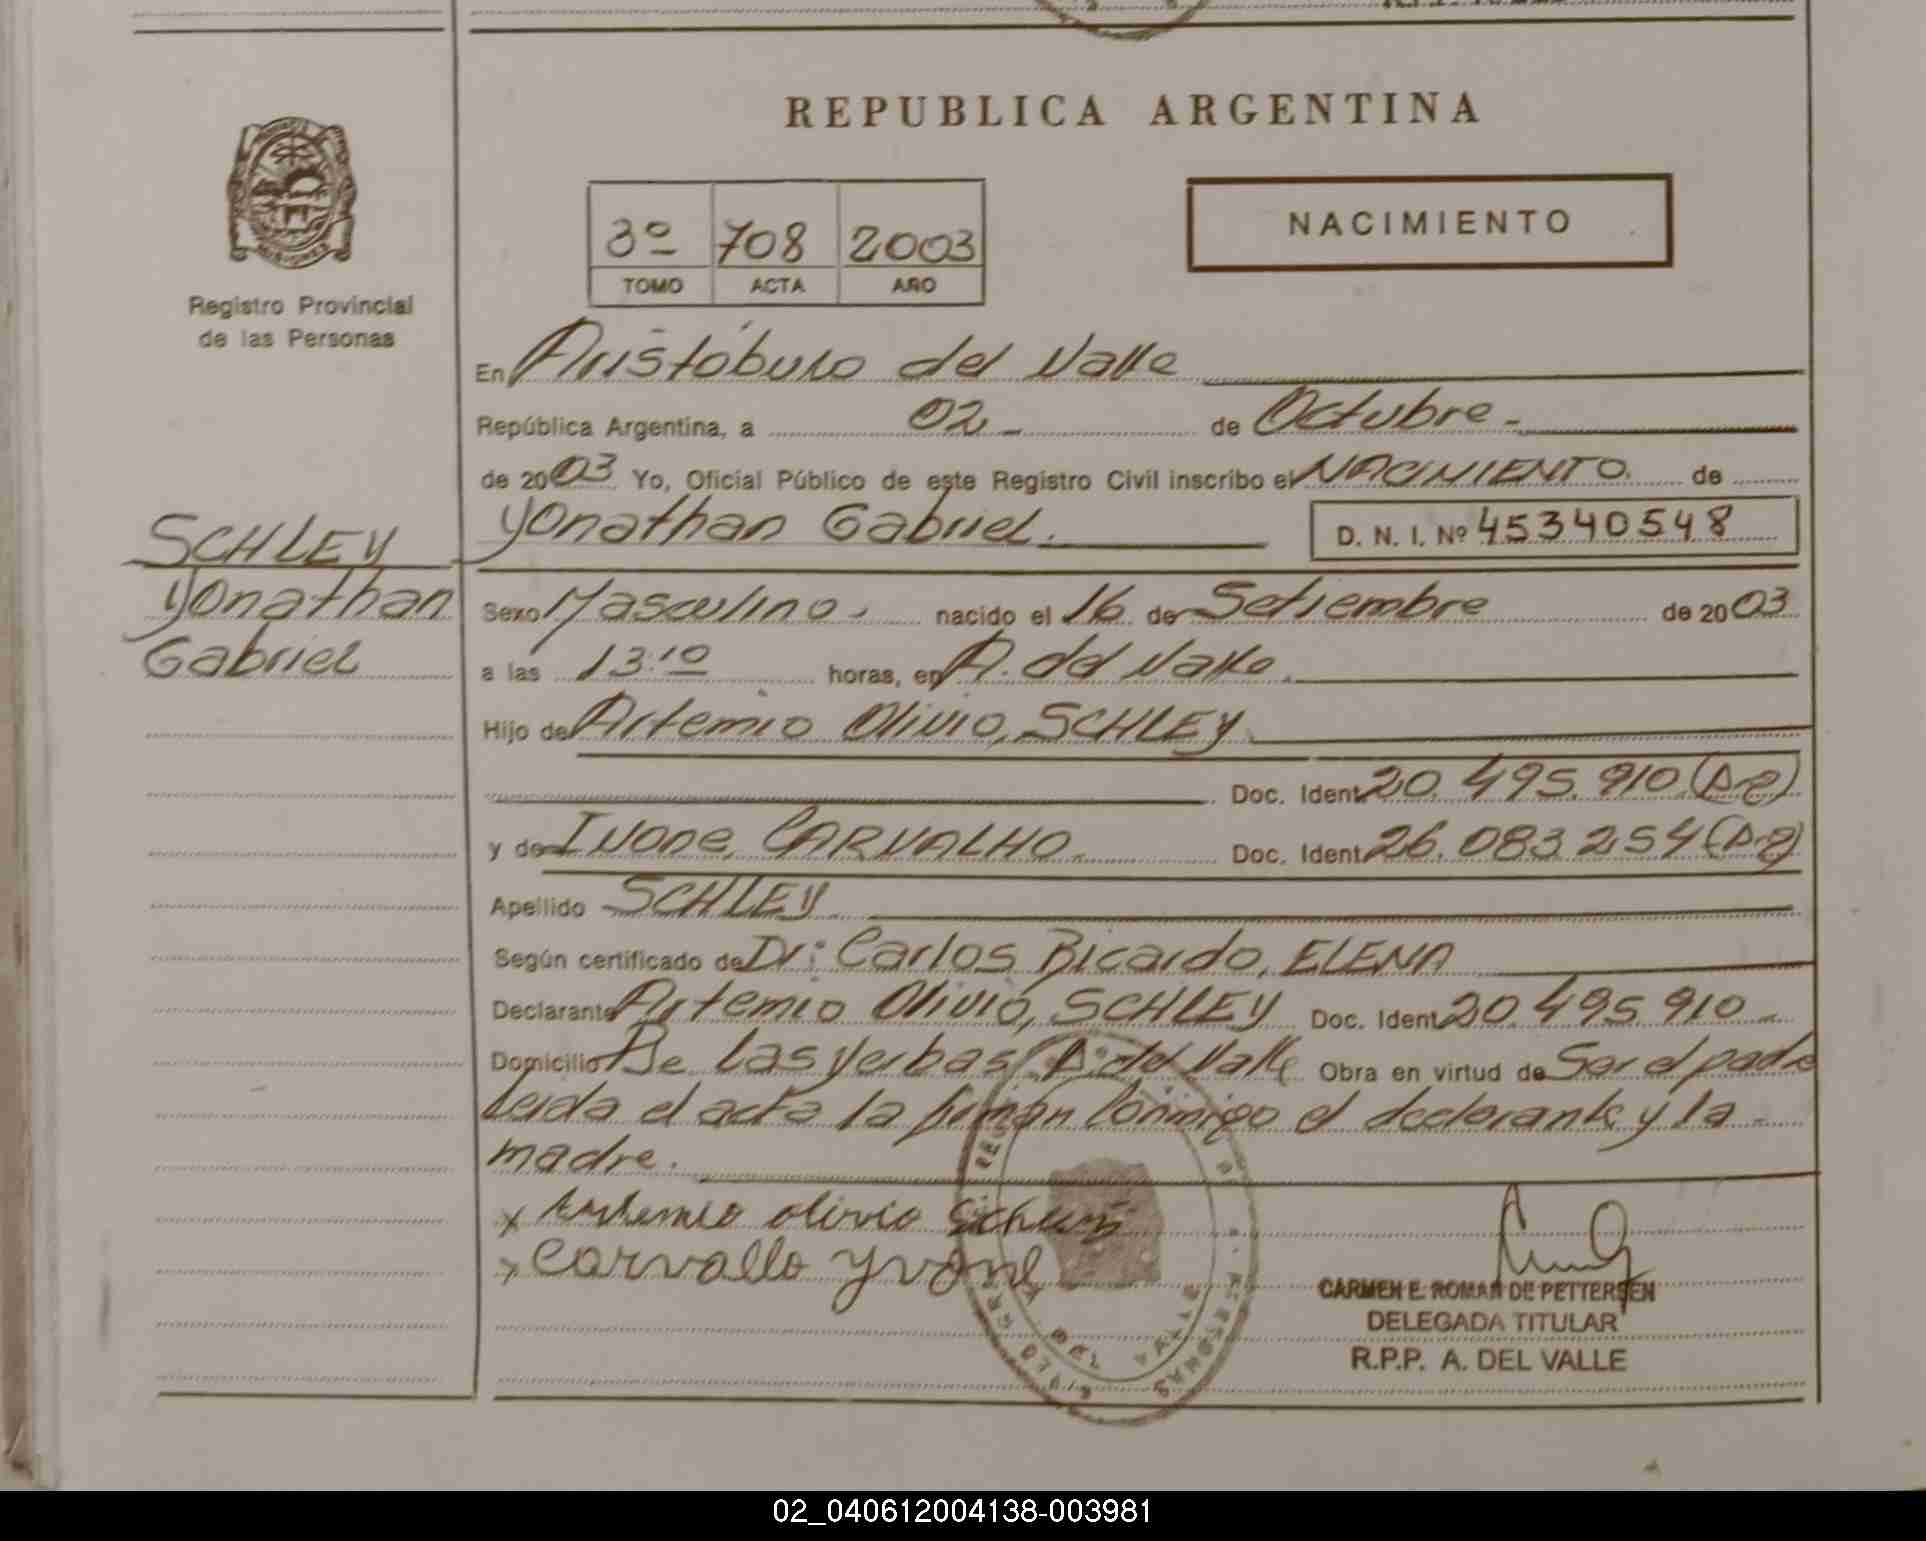 REPUBLICA ARGENTINA
NACIMIENTO
3º 708 2003
TOMO ACTA AÑO
MISIONES
Registro Provincial
de las Personas
En Aristóbulo del Valle
República Argentina, a 02 - de Octubre -
de 2003 Yo, Oficial Público de este Registro Civil inscribo el NACIMIENTO. de
Yonathan Gabriel. D. N. I. Nº 45340548
SCHLEY
Yonathan
Gabriel
Sexo Masculino. nacido el 16 de Setiembre de 2003
a las 13:10 horas, en A. del Valle.
Hijo de Artemio Olivio, SCHLEY
Doc. Ident. 20.495.910 (Ar)
y de Ivone, CARVALHO. Doc. Ident. 26.083.254 (Ar)
Apellido SCHLEY
Según certificado de Dr: Carlos Ricardo, ELENA
Declarante Artemio Olivio, SCHLEY Doc. Ident. 20.495.910 -
Domicilio Las Yerbas A. del Valle Obra en virtud de Ser el padre
Leida el acta la firman conmigo el declarante y la
madre.
x Artemio olivio Schley
x Carvallo Yvone
CARMEN E. ROMAN DE PETTERSEN
DELEGADA TITULAR
R.P.P. A. DEL VALLE
02_040612004138-003981